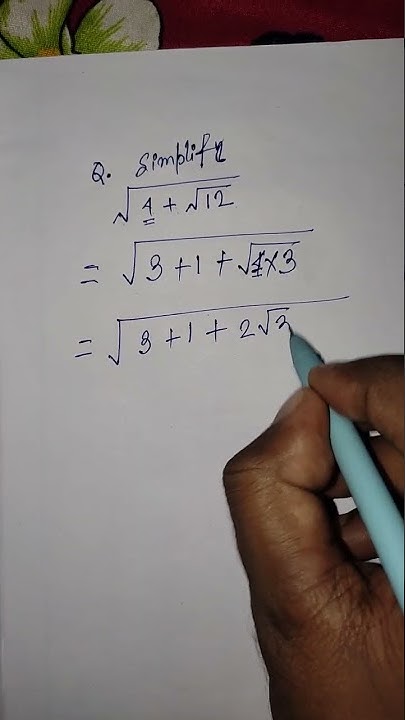 Q. Simplify
√(4 + √12)
= √(3 + 1 + √(4×3))
= √(3 + 1 + 2√3)